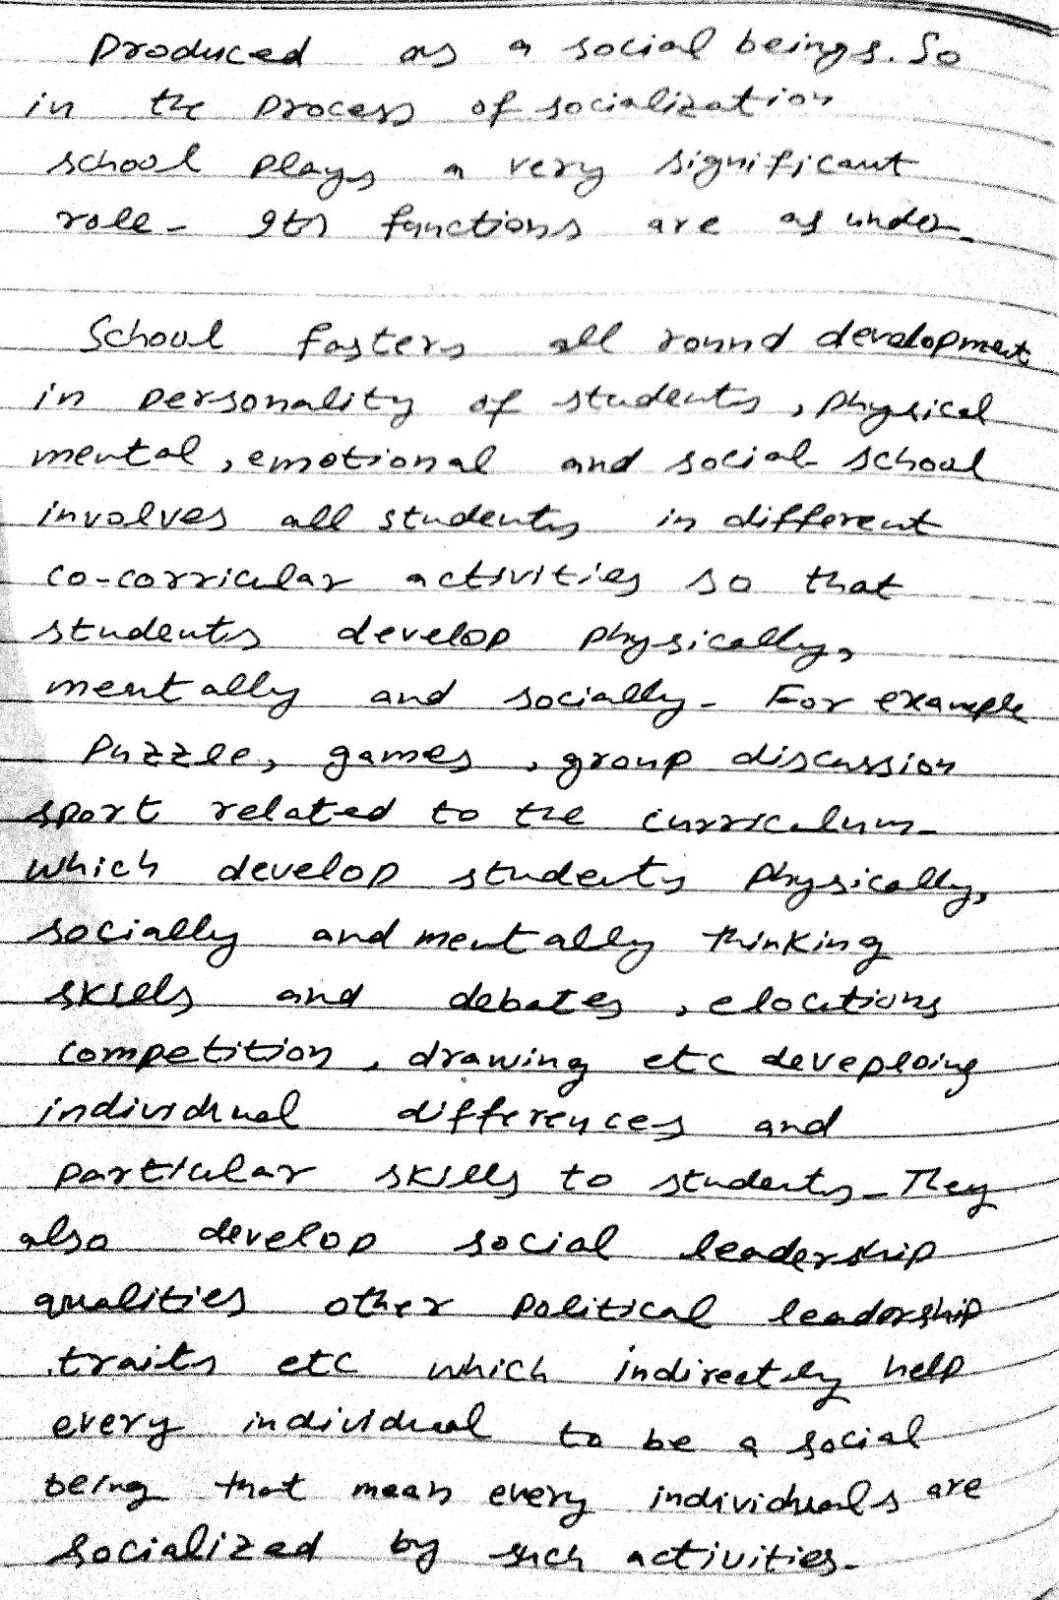 Produced as a social beings. So
in the process of socialization
school plays a very significant
role - Its functions are as under.
School fasters all round development
in personality of students, physical
mental, emotional and social school
involves all students in different
co-corricular activities so that
students develop physically,
mentally and socially - For example
Puzzle, games, group discussion
sport related to the curriculum -
which develop students physically,
socially and mentally thinking
skills and debates, elocutions
competition, drawing etc deveploing
individual differences and
particular skills to students - They
also develop social leadership
qualities other political leadership
traits etc which indirectly help
every individual to be a social
being that mean every individuals are
socialized by such activities -